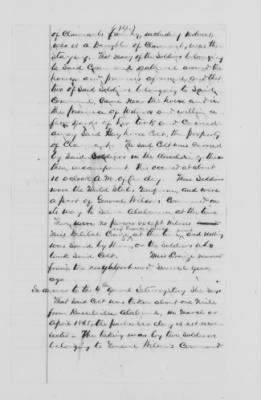 (14)
of Claimants family, including witness,
who is a Daughter of Claimant, was then
staying. That many of the Soldiers belonging
to said Command gathered around the
house and premises aforesaid, and that
two of said Soldiers belonging to said
Command, came near the house and in
the presence of witness and within a
few yards of her took and carried
away said Bay horse Colt, the property
of Claimant. The said Colt was carried
by said Soldiers in the direction of their
then encampment this occured at about
10 o'clock A.M. of the day. These Soldiers
wore the United States Uniform, and were
a part of General Wilson's Command on
its way to Selma Alabama at the time
They were no persons except witness
Miss at the time, and nothing
was said by them, or the soldiers who
took said Colt. Miss moved
from the neighborhood Several years
ago
In answer to the 6th general Interrogatory She says
That said Colt was taken about one mile
from Alabama, in March or
April 1865, the particular day is not recol-
lected - The taking was by two Soldiers
belonging to General Wilson's Command